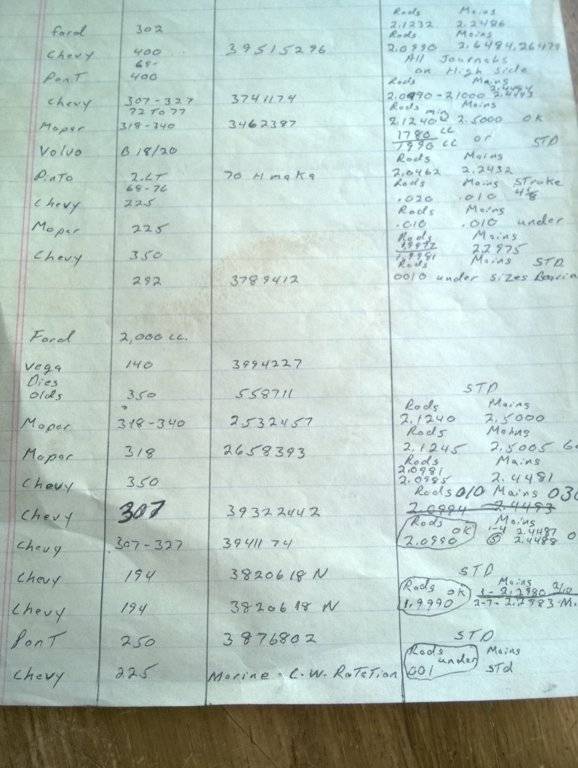 Rods Mains
Ford 302 2.1232 2.2486
Rods Mains
Chevy 400 39515296 2.0990 2.6484,26479
68- All Journals
PonT 400 on High side
Rods Mains
Chevy 307-327 3741174 2.0990-21000 2.4493
72 To 77 Rods Mains
Mopar 318-340 3462387 2.1240 2.5000 OK
Volvo B 18/20 1780 cc or STD
1990 cc
Rods Mains
Pinto 2.LT 70 Hmaka 2.0462 2.2432
68-76 Rods Mains Stroke
Chevy 225 .020 .010
Rods Mains
Mopar 225 .010 .010 under
Rods Mains
Chevy 350 22975
Rods Mains STD
292 3789412 0010 under sizes
Ford 2,000 cc.
Vega 140 3994227
Dies
olds 350 558711 STD
Rods Mains
Mopar 318-340 2532457 2.1240 2.5000
Rods Mains
Mopar 318 2658393 2.1245 2.5005
Rods Mains
2.0981
Chevy 350 2.0985 2.4481
Rods 010 Mains 030
Chevy 307 39322442 2.0994 2.4493
Rods OK Mains
Chevy 307-327 3941174 2.0990 1-4 2.4487
5 2.4488
Chevy 194 3820618 N STD
Rods OK Mains
1- 2.2980
Chevy 194 3820618 N 1.9990 2-7- 2.2983
PonT 250 3876802 STD
Rods under Mains
Chevy 225 Marine - C.W. RoTaTion 001 STd